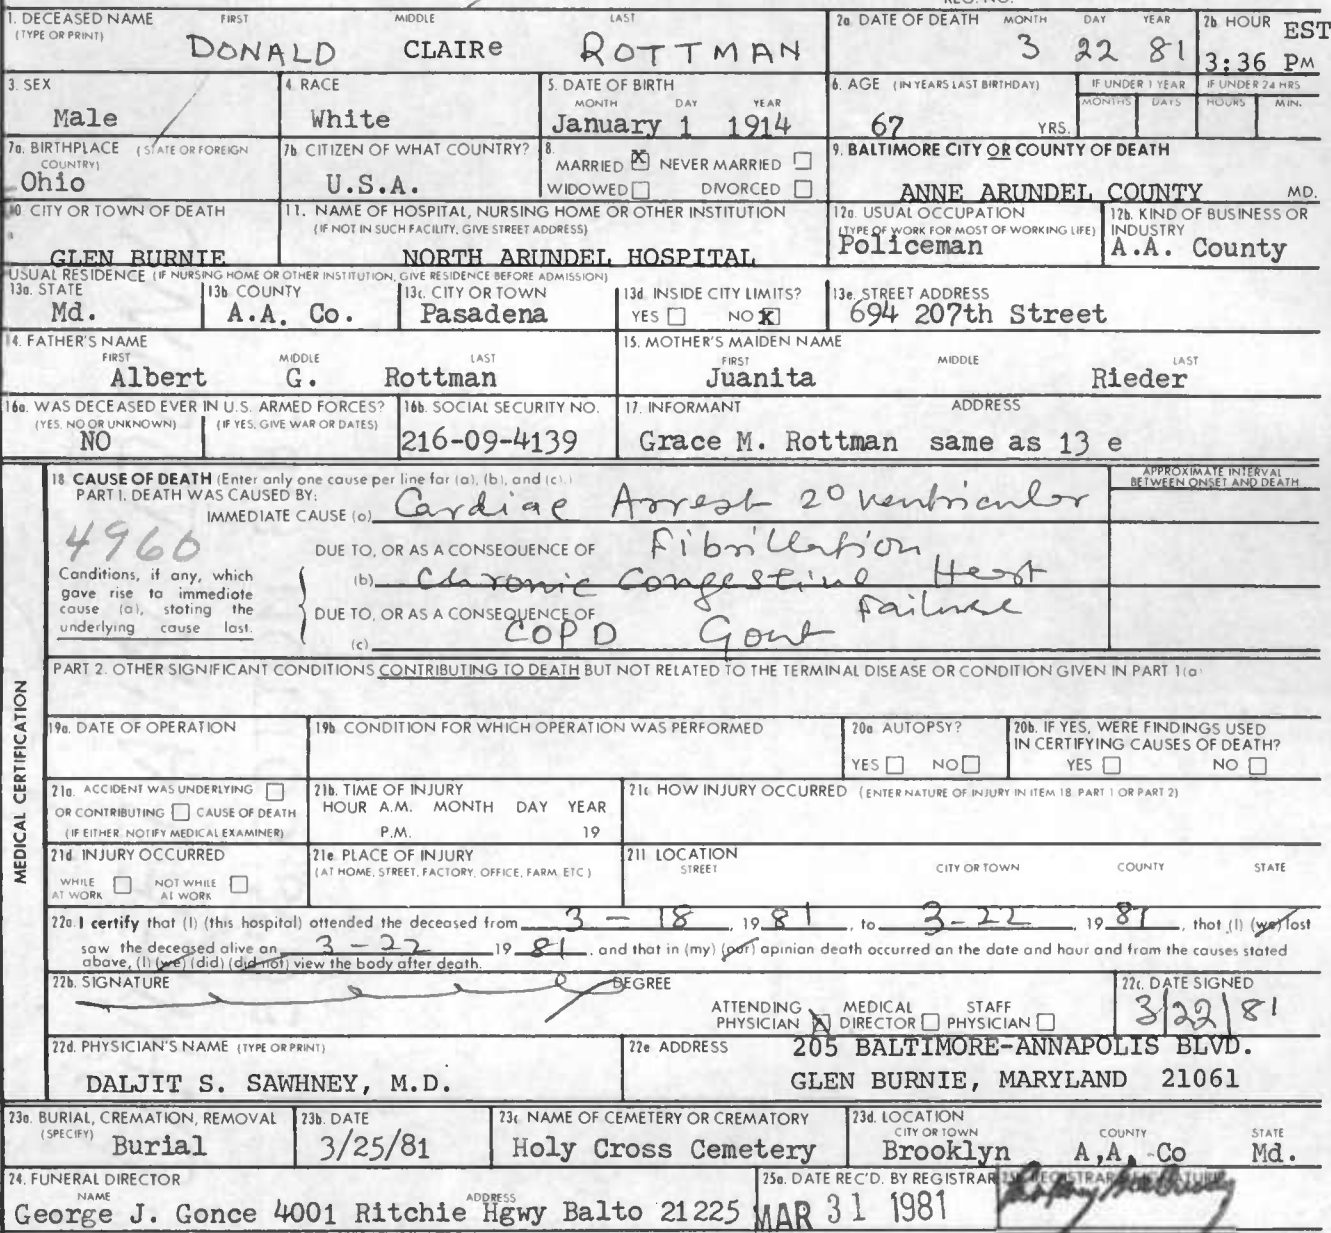 REG. NO.
1. DECEASED NAME FIRST MIDDLE LAST
(TYPE OR PRINT)
DONALD CLAIRe ROTTMAN
2a DATE OF DEATH MONTH DAY YEAR
3 22 81
2b HOUR EST
3:36 PM
3. SEX
Male
4. RACE
White
5. DATE OF BIRTH
MONTH DAY YEAR
January 1 1914
6. AGE (IN YEARS LAST BIRTHDAY)
67 YRS.
IF UNDER 1 YEAR
MONTHS DAYS
IF UNDER 24 HRS
HOURS MIN.
7a. BIRTHPLACE (STATE OR FOREIGN
COUNTRY)
Ohio
7b. CITIZEN OF WHAT COUNTRY?
U.S.A.
8.
MARRIED X NEVER MARRIED
WIDOWED DIVORCED
9. BALTIMORE CITY OR COUNTY OF DEATH
ANNE ARUNDEL COUNTY MD.
10. CITY OR TOWN OF DEATH
GLEN BURNIE
11. NAME OF HOSPITAL, NURSING HOME OR OTHER INSTITUTION
(IF NOT IN SUCH FACILITY, GIVE STREET ADDRESS)
NORTH ARUNDEL HOSPITAL
12a. USUAL OCCUPATION
(TYPE OF WORK FOR MOST OF WORKING LIFE)
Policeman
12b. KIND OF BUSINESS OR
INDUSTRY
A.A. County
USUAL RESIDENCE (IF NURSING HOME OR OTHER INSTITUTION, GIVE RESIDENCE BEFORE ADMISSION)
13a. STATE
Md.
13b. COUNTY
A.A. Co.
13c. CITY OR TOWN
Pasadena
13d. INSIDE CITY LIMITS?
YES NO X
13e. STREET ADDRESS
694 207th Street
14. FATHER'S NAME
FIRST MIDDLE LAST
Albert G. Rottman
15. MOTHER'S MAIDEN NAME
FIRST MIDDLE LAST
Juanita Rieder
16a. WAS DECEASED EVER IN U.S. ARMED FORCES?
(YES, NO OR UNKNOWN) (IF YES, GIVE WAR OR DATES)
NO
16b. SOCIAL SECURITY NO.
216-09-4139
17. INFORMANT ADDRESS
Grace M. Rottman same as 13 e
MEDICAL CERTIFICATION
18. CAUSE OF DEATH (Enter only one cause per line for (a), (b), and (c).)
PART I. DEATH WAS CAUSED BY:
IMMEDIATE CAUSE (a) Cardiac Arrest 2° ventricular
APPROXIMATE INTERVAL
BETWEEN ONSET AND DEATH
4960
DUE TO, OR AS A CONSEQUENCE OF Fibrillation
Conditions, if any, which
gave rise to immediate
cause (a), stating the
underlying cause last.
(b) Chronic Congestive Heart
DUE TO, OR AS A CONSEQUENCE OF Failure
(c) COPD Gout
PART 2. OTHER SIGNIFICANT CONDITIONS CONTRIBUTING TO DEATH BUT NOT RELATED TO THE TERMINAL DISEASE OR CONDITION GIVEN IN PART 1(a)
19a. DATE OF OPERATION
19b. CONDITION FOR WHICH OPERATION WAS PERFORMED
20a. AUTOPSY?
YES NO
20b. IF YES, WERE FINDINGS USED
IN CERTIFYING CAUSES OF DEATH?
YES NO
21a. ACCIDENT WAS UNDERLYING
OR CONTRIBUTING CAUSE OF DEATH
(IF EITHER NOTIFY MEDICAL EXAMINER)
21b. TIME OF INJURY
HOUR A.M. MONTH DAY YEAR
P.M. 19
21c HOW INJURY OCCURRED (ENTER NATURE OF INJURY IN ITEM 18, PART 1 OR PART 2)
21d. INJURY OCCURRED
WHILE NOT WHILE
AT WORK AT WORK
21e. PLACE OF INJURY
(AT HOME, STREET, FACTORY, OFFICE, FARM, ETC)
21f. LOCATION
STREET CITY OR TOWN COUNTY STATE
22a. I certify that (I) (this hospital) attended the deceased from 3 - 18, 1981, to 3-22, 1981, that (I) (we) last
saw the deceased alive on 3-22 1981, and that in (my) (our) opinion death occurred on the date and hour and from the causes stated
above, (I) (we) (did) (did not) view the body after death.
22b. SIGNATURE DEGREE
ATTENDING PHYSICIAN X MEDICAL DIRECTOR STAFF PHYSICIAN
22c. DATE SIGNED
3/22/81
22d. PHYSICIAN'S NAME (TYPE OR PRINT)
DALJIT S. SAWHNEY, M.D.
22e ADDRESS 205 BALTIMORE-ANNAPOLIS BLVD.
GLEN BURNIE, MARYLAND 21061
23a. BURIAL, CREMATION, REMOVAL
(SPECIFY) Burial
23b. DATE
3/25/81
23c. NAME OF CEMETERY OR CREMATORY
Holy Cross Cemetery
23d. LOCATION
CITY OR TOWN COUNTY STATE
Brooklyn A,A, Co Md.
24. FUNERAL DIRECTOR
NAME ADDRESS
George J. Gonce 4001 Ritchie Hgwy Balto 21225
25a. DATE REC'D. BY REGISTRAR
MAR 31 1981